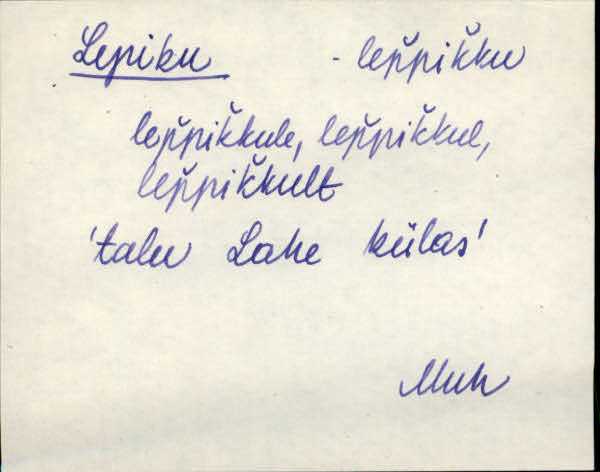 Lepiku - lep̌pik̆ku
lep̌pik̆kule, lep̌pik̆kul,
lep̌pik̆kult
'talu Lahe külas'
Muh